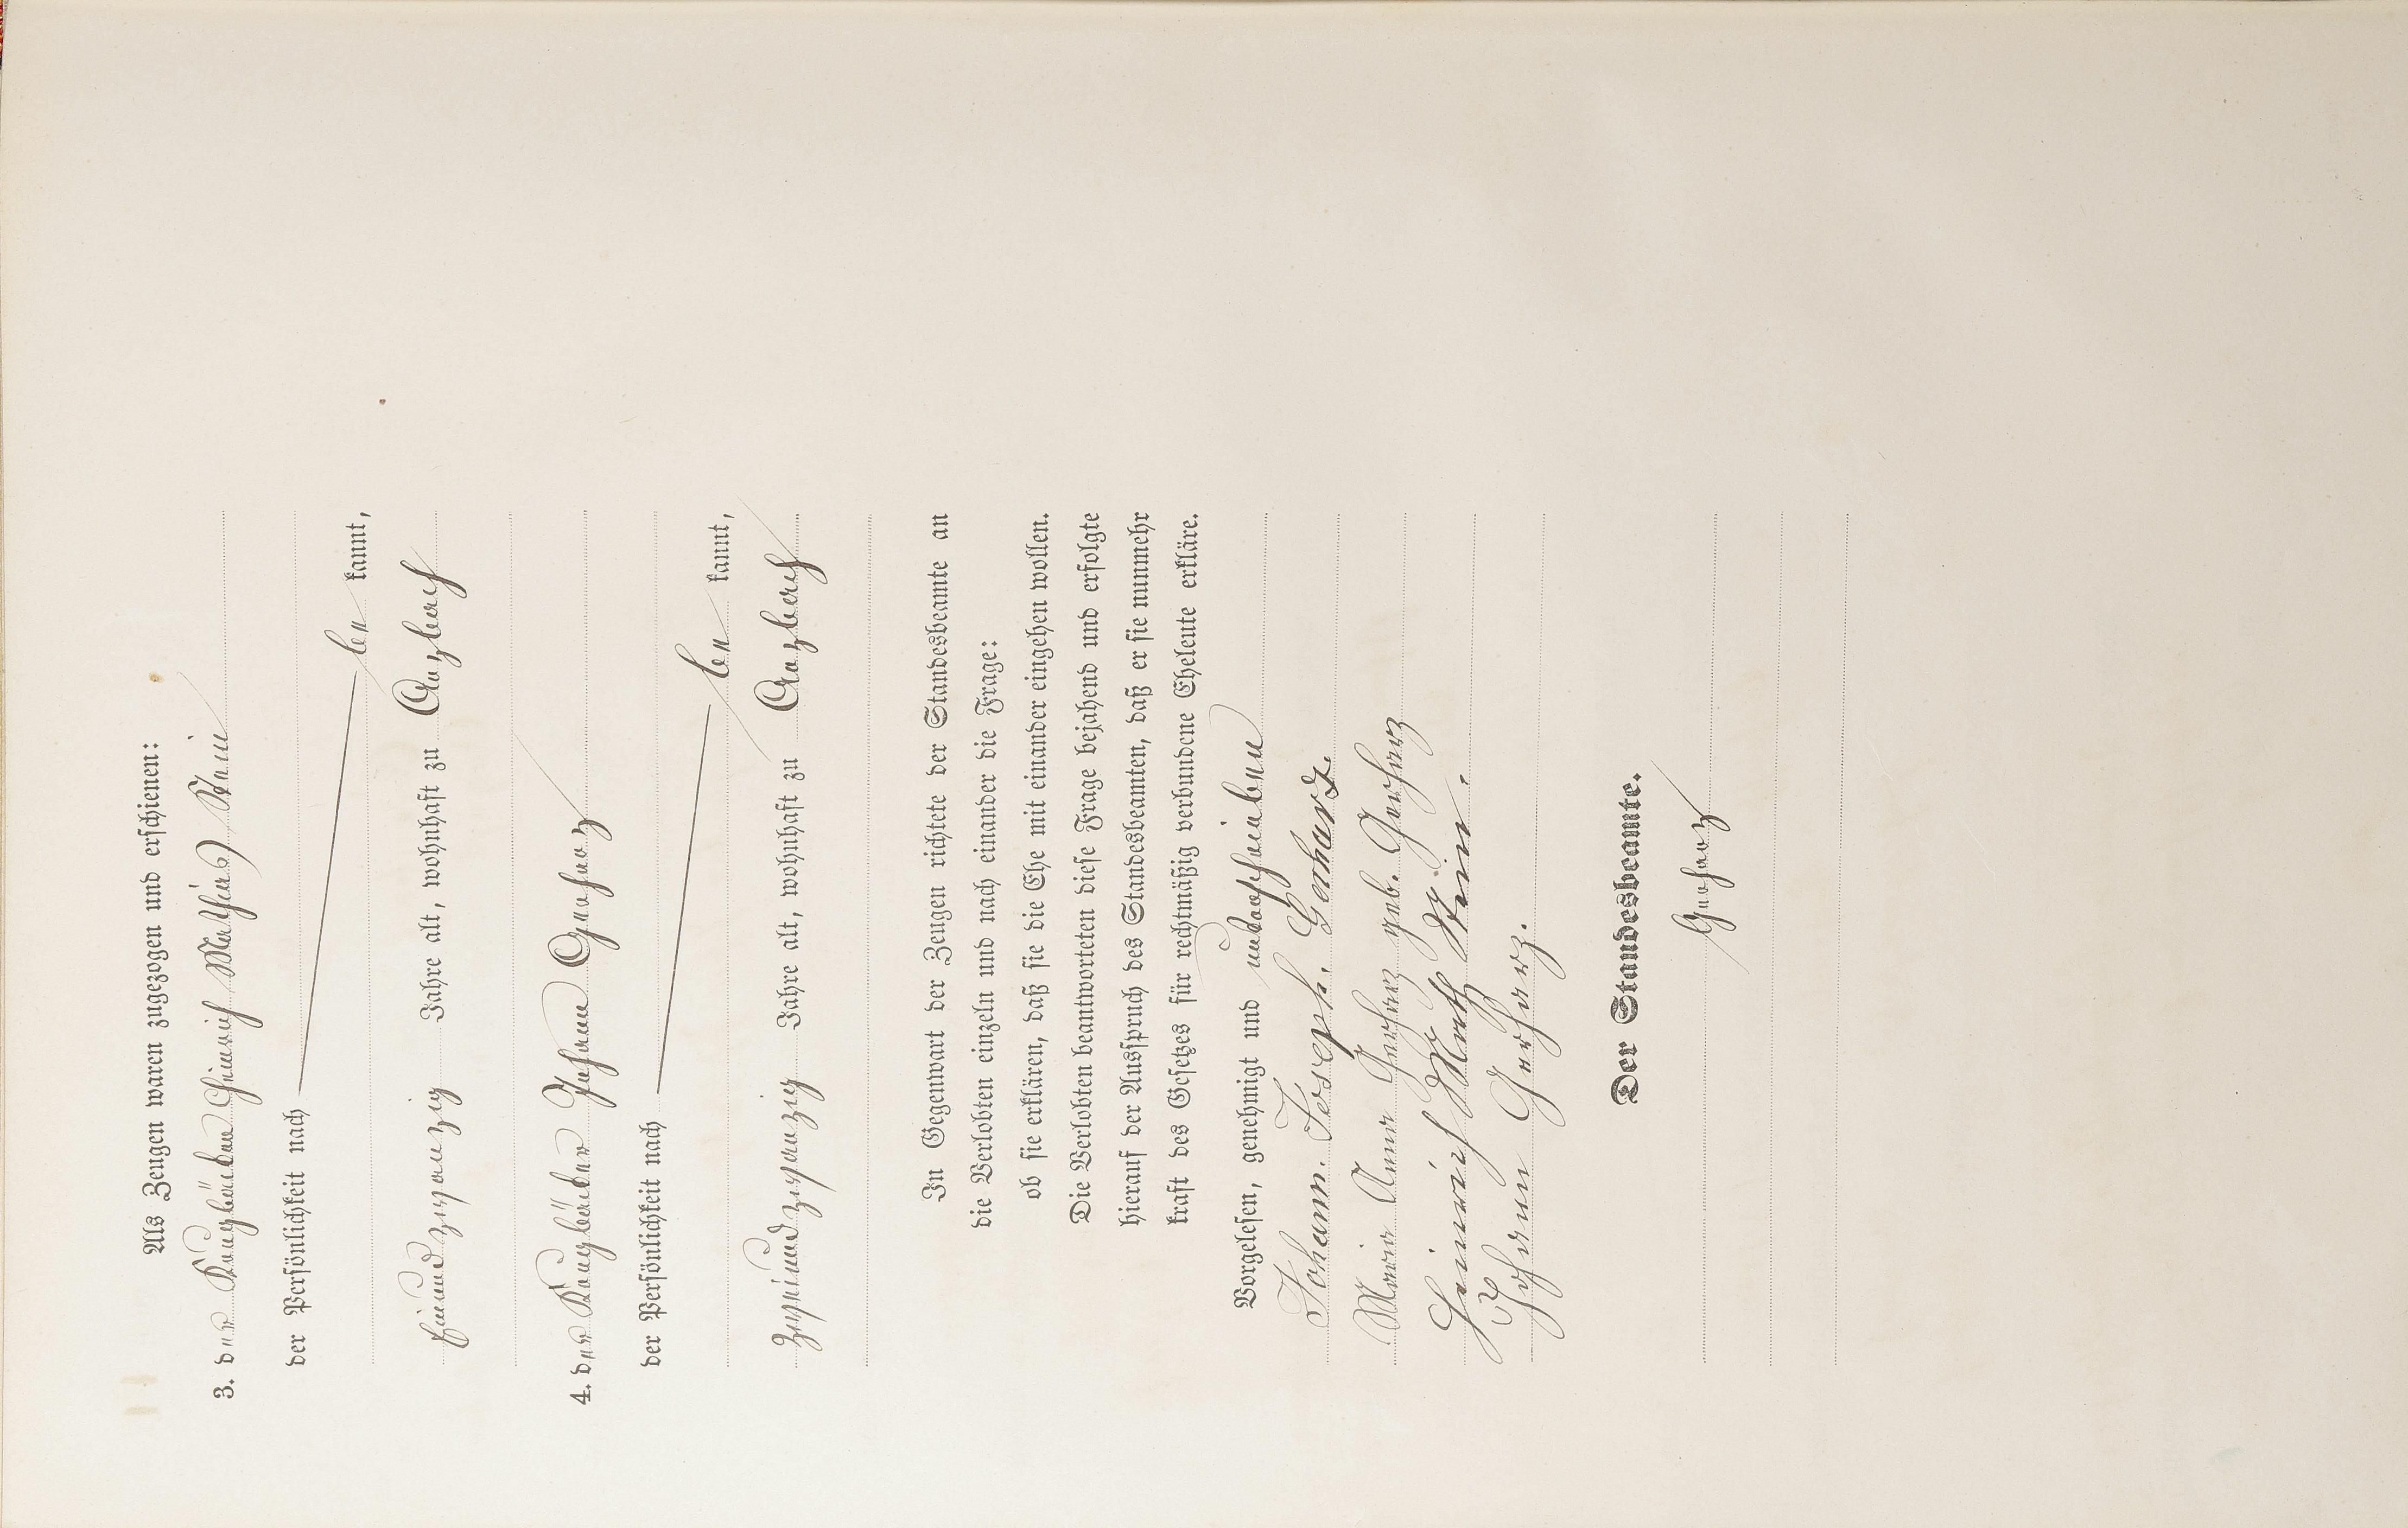 Als Zeugen waren zugezogen und erschienen:
3. der Kannenbäcker Heinrich Mathias Klein
der Persönlichkeit nach
be kannt,
einundzwanzig Jahre alt, wohnhaft zu
4. der Johann Gerharz
der Persönlichkeit nach
be kannt,
zweiundzwanzig Jahre alt, wohnhaft zu
In Gegenwart der Zeugen richtete der Standesbeamte an
die Verlobten einzeln und nach einander die Frage:
ob sie erklären, daß sie die Ehe mit einander eingehen wollen.
Die Verlobten beantworteten diese Frage bejahend und erfolgte
hierauf der Ausspruch des Standesbeamten, daß er sie nunmehr
kraft des Gesetzes für rechtmäßig verbundene Eheleute erkläre.
Vorgelesen, genehmigt und unterschrieben
Johann. Joseph. Gerharz.
Maria Anna Gerharz geb. Gerharz
Heinrich Math Klein.
Johann Gerharz.
Der Standesbeamte.
Gerharz